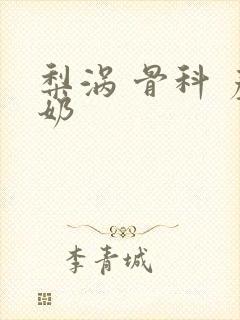 梨涡 骨科 产
奶
李青城